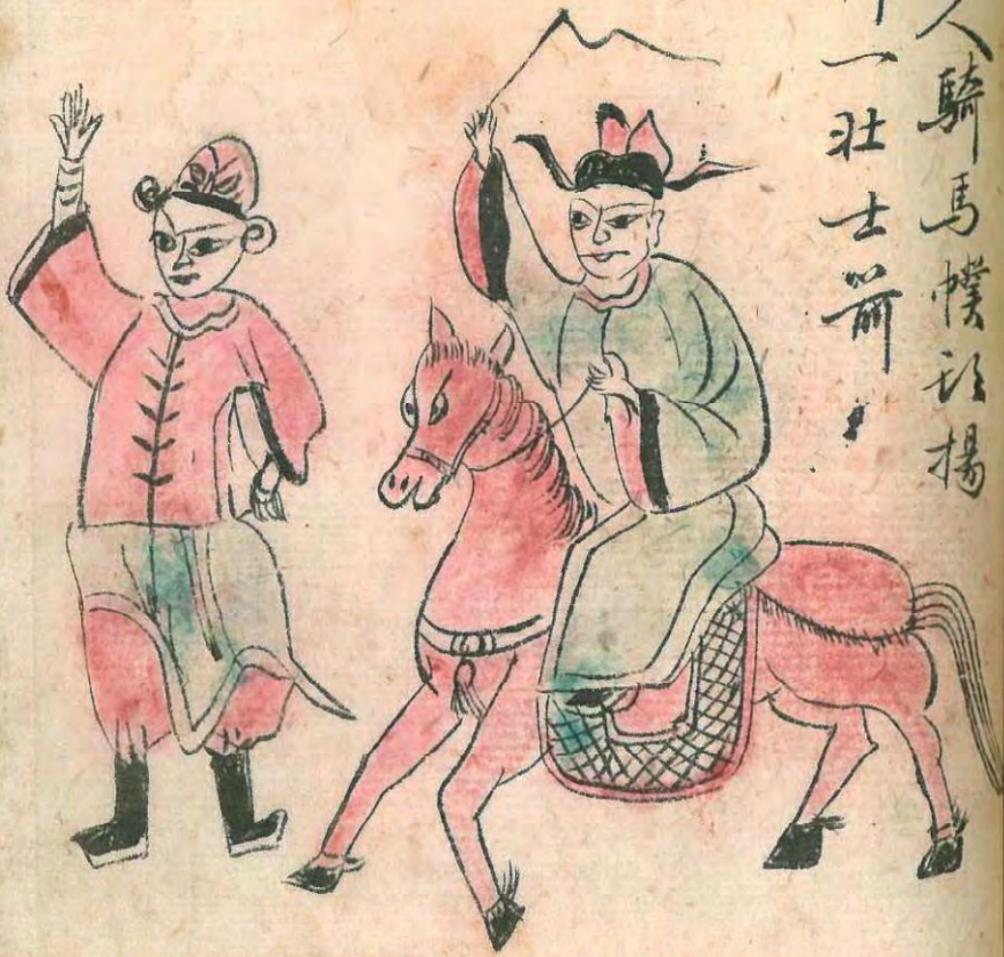 人騎馬幞頭揚
一壮士前